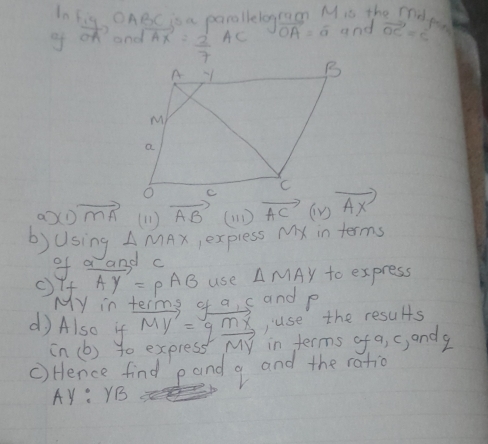 In Fig OABC is a parallelogram M is the mid
of OA and AX = 2/7 AC OA = a and OC = c
A Y B
M
a
O c C
a) (i) MA (ii) AB (iii) AC (iv) AX
b) Using Δ MAX, express MX in terms
of a and c
c) If AY = pAB use Δ MAY to express
MY in terms of a, c and p
d) Also if MY = q mx, use the results
in (b) to express MY in terms of a, c, and q
c) Hence find p and q and the ratio
AY : YB